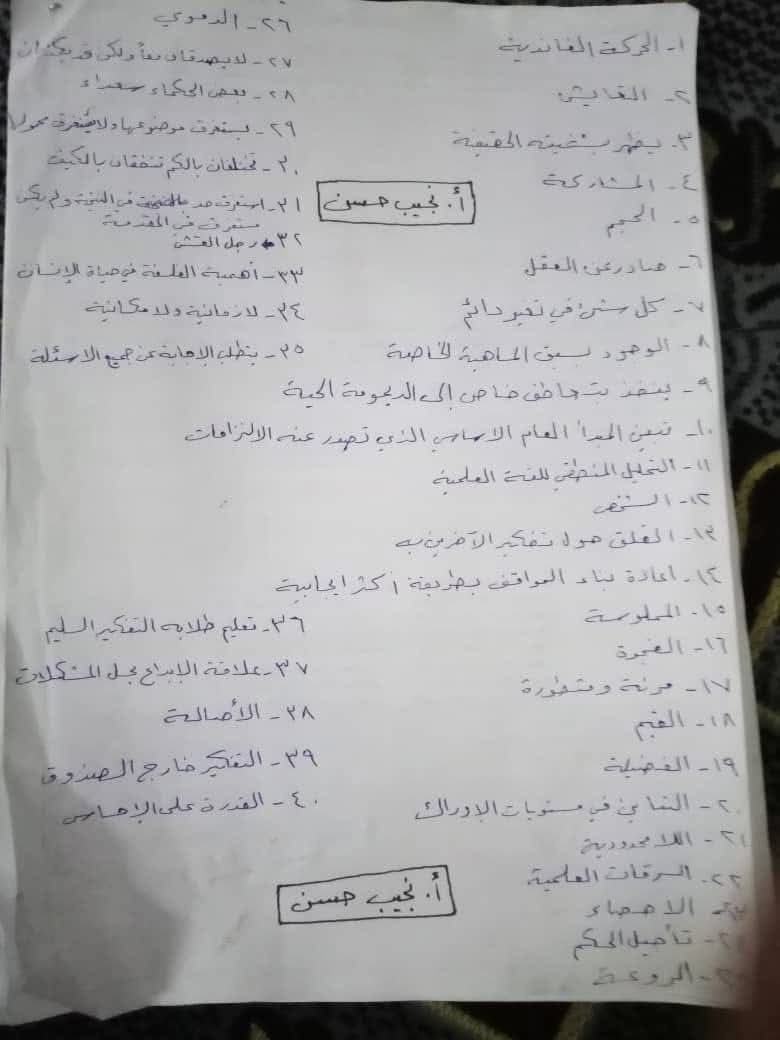 ١- الحركة الغاندية
٢- التعايش
٣- يظهر بشخصيته الحقيقية
٤- المشاركة
٥- الحجم
٦- صادر عن العقل
٧- كل شئ في تغير دائم
٨- الوجود يسبق الماهية الخاصة
٩- ينفذ بتعاطف خاص إلى الديمومة الحية
١٠- تبين المبدأ العام الاساسي الذي تصدر عنه الالتزامات
١١- التحليل المنطقي للغة العلمية
١٢- الشخص
١٣- القلق حول تفكير الآخرين به
١٤- اعادة بناء المواقف بطريقة أكثر ايجابية
١٥- الملموسة
١٦- الفجوة
١٧- مرنة ومتطورة
١٨- القيم
١٩- الفضيلة
٢٠- التباين في مستويات الإدراك
٢١- اللامحدودية
٢٢- السرقات العلمية
٢٣- الاحصاء
٢٤- تأجيل الحكم
٢٥- الروعة
٢٦- الدموي
٢٧- لا يصدقان معاً ولكن قد يكذبان
٢٨- بعض الحكماء سعداء
٢٩- يستغرق موضوعها ولا يستغرق محمولها
٣٠- تختلفان بالكم تتفقان بالكيف
٣١- استغرق حد في النتيجة ولم يكن
مستغرق في المقدمة
٣٢- رجل القش
٣٣- أهمية الفلسفة في حياة الإنسان
٣٤- لا زمانية ولا مكانية
٣٥- يتطلب الإجابة عن جميع الاسئلة
٣٦- تعليم طلابه التفكير السليم
٣٧- علاقة الإبداع بحل المشكلات
٣٨- الأصالة
٣٩- التفكير خارج الصندوق
٤٠- القدرة على الإحساس
أ. نجيب حسن
أ. نجيب حسن